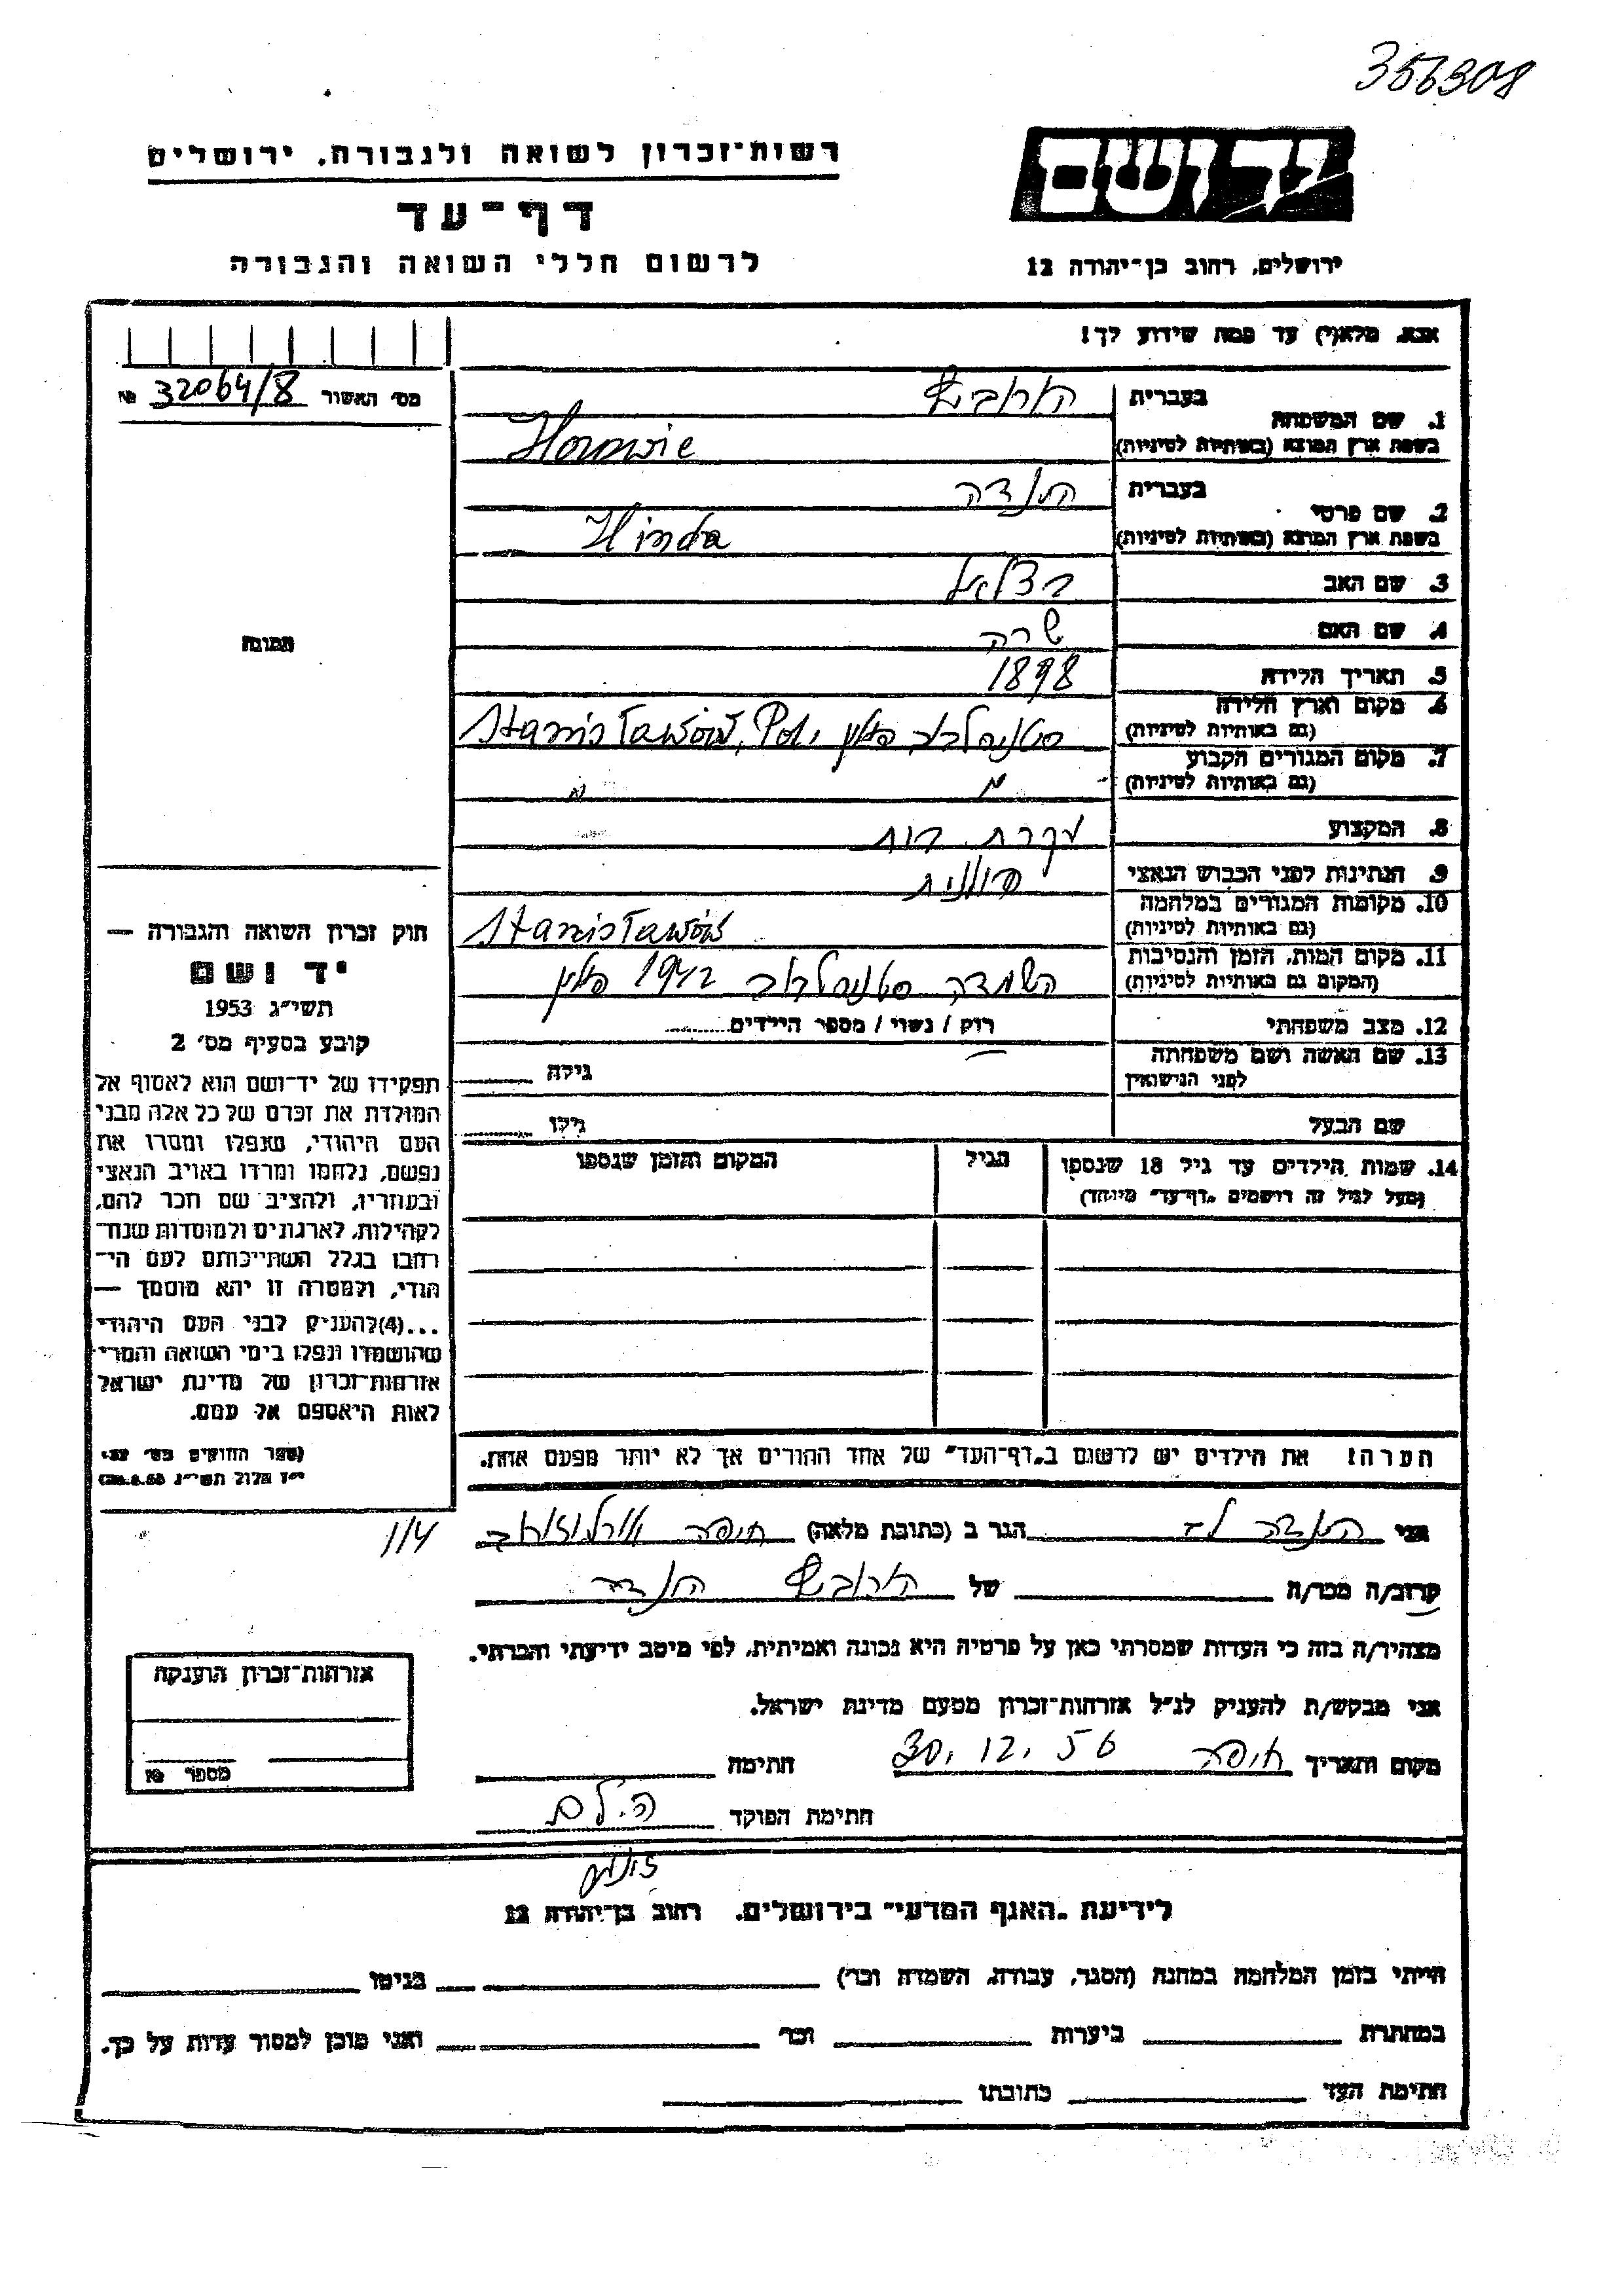 356308
רשות־זכרון לשואה ולגבורה, ירושלים
יד ושם
דף־עד
לרשום חללי השואה והגבורה
ירושלים, רחוב בן־יהודה 12
אנא, מלא(י) עד כמה שידוע לך!
מס׳ האשור 32064/8 №
בעברית
1. שם המשפחה
בשפת ארץ המוצא (באותיות לטיניות)
בעברית הינדה
2. שם פרטי
בשפת ארץ המוצא (באותיות לטיניות) Hinda
3. שם האב בצלאל
4. שם האם שרה
תמונה
5. תאריך הלידה 1898
6. מקום וארץ הלידה סטניסלבוב פולין Stanisławów, Pol.
(גם באותיות לטיניות)
7. מקום המגורים הקבוע
(גם באותיות לטיניות) " "
8. המקצוע עקרת בית
9. הנתינות לפני הכבוש הנאצי פולנית
10. מקומות המגורים במלחמה Stanisławów
(גם באותיות לטיניות)
11. מקום המות, הזמן והנסיבות השמדה סטניסלבוב 1942 פולין
(המקום גם באותיות לטיניות)
12. מצב משפחתי רוק / נשוי / מספר הילדים
13. שם האשה ושם משפחתה גילה
לפני הנישואין
שם הבעל גילו
14. שמות הילדים עד גיל 18 שנספו הגיל המקום והזמן שנספו
(מעל לגיל זה רושמים „דף־עד״ מיוחד)
חוק זכרון השואה והגבורה —
יד ושם
תשי״ג 1953
קובע בסעיף מס׳ 2
תפקידו של יד־ושם הוא לאסוף אל
המולדת את זכרם של כל אלה מבני
העם היהודי, שנפלו ומסרו את
נפשם, נלחמו ומרדו באויב הנאצי
ובעוזריו, ולהציב שם וזכר להם,
לקהילות, לארגונים ולמוסדות שנח־
רבו בגלל השתייכותם לעם הי־
הודי, ולמטרה זו יהא מוסמך —
...(4)להעניק לבני העם היהודי
שהושמדו ונפלו בימי השואה והמרי
אזרחות־זכרון של מדינת ישראל
לאות היאספם אל עמם.
(ספר החוקים מס׳ 132
י״ז אלול תשי״ג 28.8.53)
הערה! את הילדים יש לרשום ב„דף־העד״ של אחד ההורים אך לא יותר מפעם אחת.
אני הינדה הגר ב (כתובת מלאה) חיפה ארלוזורוב
114
קרוב/ה מכר/ה של הינדה
מצהיר/ה בזה כי העדות שמסרתי כאן על פרטיה היא נכונה ואמיתית, לפי מיטב ידיעתי והכרתי.
אני מבקש/ת להעניק לנ״ל אזרחות־זכרון מטעם מדינת ישראל.
מקום ותאריך חיפה 30.12.56 חתימה
חתימת הפוקד
אזרחות־זכרון הוענקה
מספר №
לידיעת „האגף המדעי״ בירושלים, רחוב בן־יהודה 12
הייתי בזמן המלחמה במחנה (הסגר, עבודה, השמדה וכו׳) בגיטו
במחתרת ביערות וכו׳ ואני מוכן למסור עדות על כך.
חתימת העד כתובתו